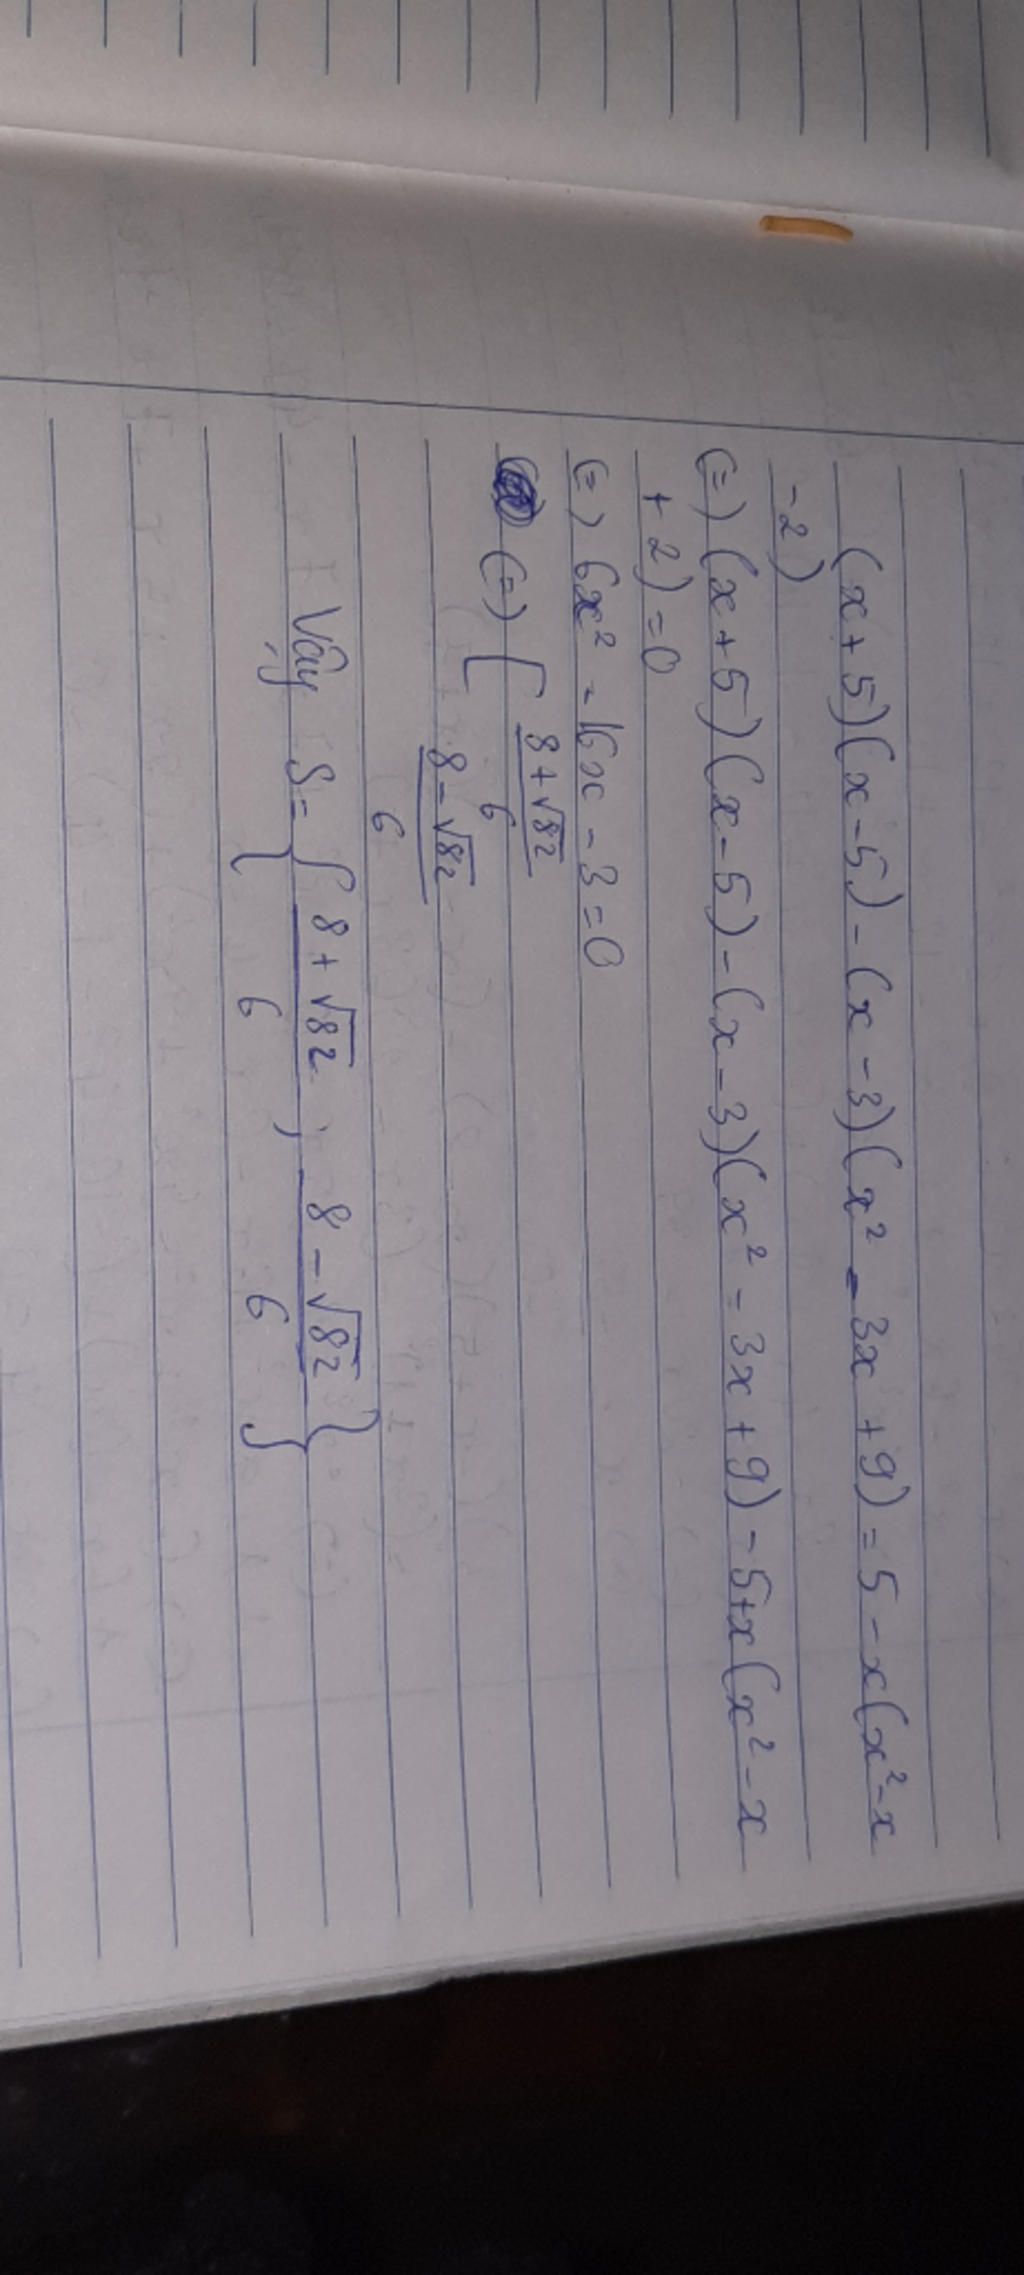 (x+5)(x-5)-(x-3)(x² - 3x +9) = 5 - x(x²-x
-2)
(=) (x+5)(x-5)-(x-3)(x² - 3x +9) - 5+x(x²-x
+ 2) = 0
(=) 6x² - 16x - 3 = 0
(=) [ (8+√82)/6
(8-√82)/6
Vậy S = { (8+√82)/6 ; (8-√82)/6 }